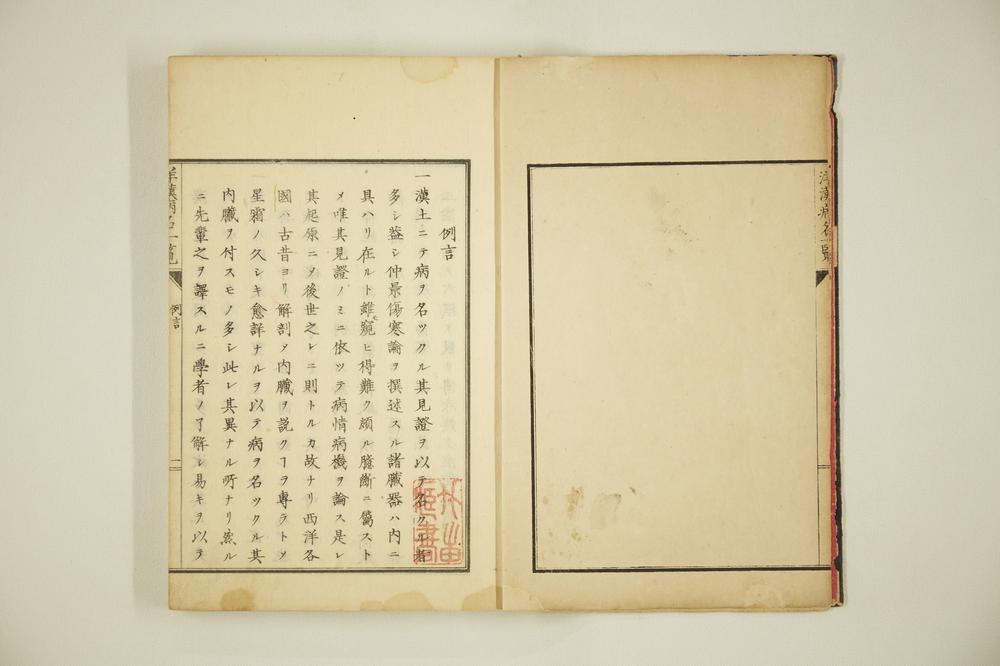 洋漢病名一覧
例言
一漢土ニテ病ヲ名ツクル其見證ヲ以テ名クル者
多シ蓋シ仲景傷寒論ヲ撰述スル諸臓器ハ内ニ
具ハリ在ルト雖窺ヒ得難ク頗ル臆斷ニ屬スト
メ唯其見證ノミニ依ツテ病情病機ヲ論ス是レ
其起原ニメ後世之レニ則トルカ故ナリ西洋各
國ハ古昔ヨリ解剖メ内臓ヲ説クヿヲ專ラトメ
星霜ノ久シキ愈詳ナルヲ以テ病ヲ名ツクル其
内臓ヲ付スモノ多シ此レ其異ナル所ナリ然ル
ニ先輩之ヲ譯スルニ學者ノ了解シ易キヲ以テ
洋漢病名一覧
例言
一